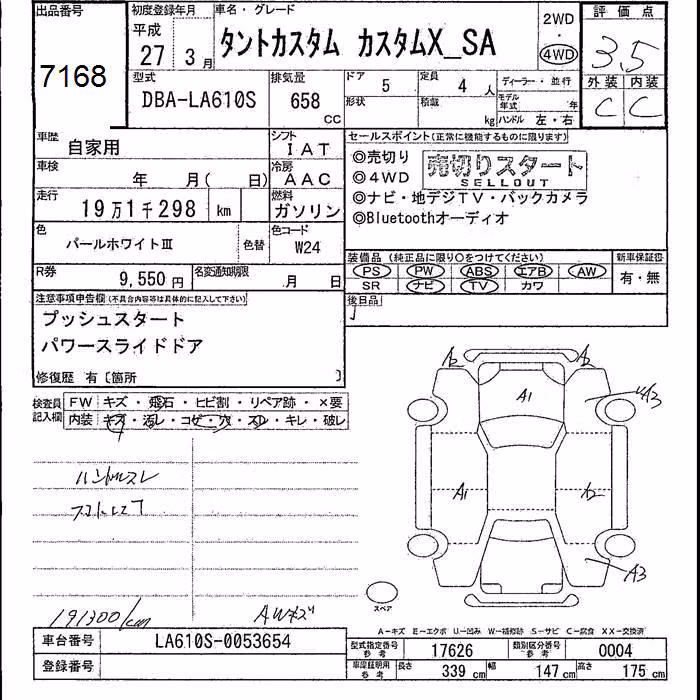 出品番号
7168
初度登録年月
平成
27 3月
車名・グレード
タントカスタム カスタムX_SA
2WD
・
4WD
評価点
3.5
外装 内装
C C
型式
DBA-LA610S
排気量
658 cc
ドア 5
形状
定員 4人
積載 kg
ディーラー・並行
モデル年式 年
ハンドル 左・右
車歴
自家用
シフト
IAT
車検
年 月( 日)
冷房
AAC
走行
19万1千298 km
燃料
ガソリン
色
パールホワイトⅢ
色替
色コード
W24
R券
9,550円
名変通知期限
月 日
セールスポイント(正常に機能するものに限ります)
◎売切り
売切りスタート
SELLOUT
◎4WD
◎ナビ・地デジTV・バックカメラ
◎Bluetoothオーディオ
装備品(純正品に限り○をつけてください)
PS PW ABS エアB AW
SR ナビ TV カワ
新車保証書
有・無
後日品
注意事項申告欄(不具合内容等は具体的に記入して下さい)
プッシュスタート
パワースライドドア
修復歴 有〔箇所 〕
検査員記入欄
FW キズ・飛石・ヒビ割・リペア跡・×要
内装 キズ・汚レ・コゲ・穴・スレ・キレ・破レ
ハンドルスレ
191300km
AWキズ
A2 A2
A1
A3
A1
A2
A3
スペア
A-キズ E-エクボ U-凹み W-補修跡 S-サビ C-腐食 XX-交換済
車台番号
LA610S-0053654
登録番号
型式指定番号 参考
17626
類別区分番号 参考
0004
車庫証明用 参考
長さ 339 cm
幅 147 cm
高さ 175 cm